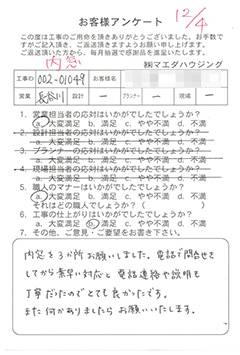 お客様アンケート
12/4
この度は工事のご用命を頂きありがとうございました。お手数で
すがご記入頂き、ご返送頂きますようお願い申し上げます。
ご返送頂いた方から、毎月抽選で感謝品を進呈いたします。
内窓
㈱マエダハウジング
工事ID 002-01049 お客様名
営業 長谷川 設計 ー プランナー ー 現場 ー
1. 営業担当者の応対はいかがでしたでしょうか?
a. 大変満足 b. 満足 c. やや不満 d. 不満
2. 設計担当者の応対はいかがでしたでしょうか?
a. 大変満足 b. 満足 c. やや不満 d. 不満
3. プランナーの応対はいかがでしたでしょうか?
a. 大変満足 b. 満足 c. やや不満 d. 不満
4. 現場担当者の応対はいかがでしたでしょうか?
a. 大変満足 b. 満足 c. やや不満 d. 不満
5. 職人のマナーはいかがでしたでしょうか?
a. 大変満足 b. 満足 c. やや不満 d. 不満
それはどの職人でしょうか? ( )
6. 工事の仕上がりはいかがでしたでしょうか?
a. 大変満足 b. 満足 c. やや不満 d. 不満
7. その他、ご意見・ご要望をお書き下さい。
内窓を3か所お願いしました。電話で問合せを
してから素早い対応と電話連絡や説明も
丁寧だったのでとても良かったです。
また何かありましたらお願いいたします。